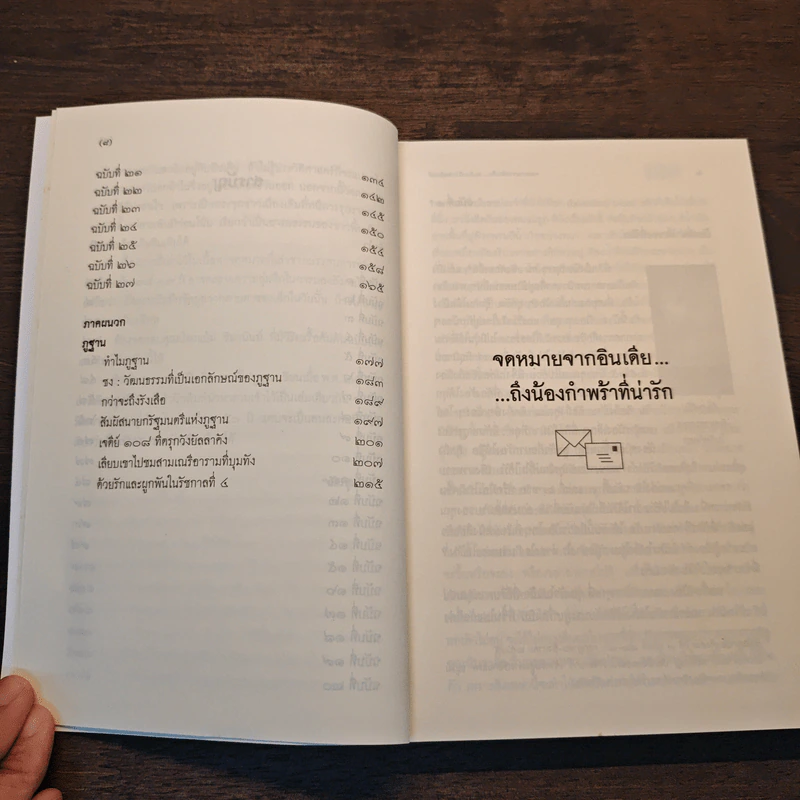 (๘)
ฉบับที่ ๒๑ ๑๓๔
ฉบับที่ ๒๒ ๑๔๒
ฉบับที่ ๒๓ ๑๔๕
ฉบับที่ ๒๔ ๑๕๐
ฉบับที่ ๒๕ ๑๕๔
ฉบับที่ ๒๖ ๑๕๘
ฉบับที่ ๒๗ ๑๖๕
ภาคผนวก
ภูฐาน
ทำไมภูฐาน ๑๗๗
ซง : วัฒนธรรมที่เป็นเอกลักษณ์ของภูฐาน ๑๘๓
กว่าจะถึงรังเสือ ๑๘๙
สัมผัสนายกรัฐมนตรีแห่งภูฐาน ๑๙๗
เจดีย์ ๑๐๘ ที่ดรุกวังยัลลาคัง ๒๐๑
เลียบเขาไปชมสามเณรีอารามที่บุมทัง ๒๐๗
ด้วยรักและผูกพันในรัชกาลที่ ๔ ๒๑๕
จดหมายจากอินเดีย...
...ถึงน้องกำพร้าที่น่ารัก